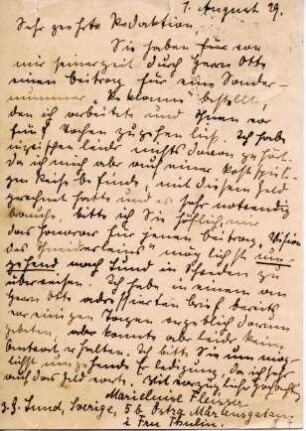 1. August 29.
Sehr geehrte Redaktion.
Sie haben für von
mir seinerzeit durch Herrn Otto
einen Beitrag für eine Sonder-
nummer "Reklame" bestellt,
den ich arbeitete und Ihnen vor
fünf Wochen zugehen ließ. Ich habe
inzwischen leider nichts davon gehört.
Da ich mich aber auf einer kostspieli-
gen Reise befinde, mit diesem Geld
gerechnet hatte und es sehr notwendig
brauche, bitte ich Sie höflich, mir
das Honorar für jenen Beitrag "Vision
des Schneiderleins" möglichst um-
gehend nach Lund in Schweden zu
überweisen. Ich habe in einem an
Herrn Otto adressierten Brief bereits
vor einigen Tagen vergeblich darum
gebeten, aber konnte aber leider keine
Antwort erhalten. Ich bitte Sie um mög-
lichst umgehende Erledigung, da ich sehr
auf das Geld warte. Mit vorzüglicher Hochachtung
Marieluise Fleisser
z. Z. Lund, Sverige, 5 b Östra Mårtensgatan
i Fru Thulin.